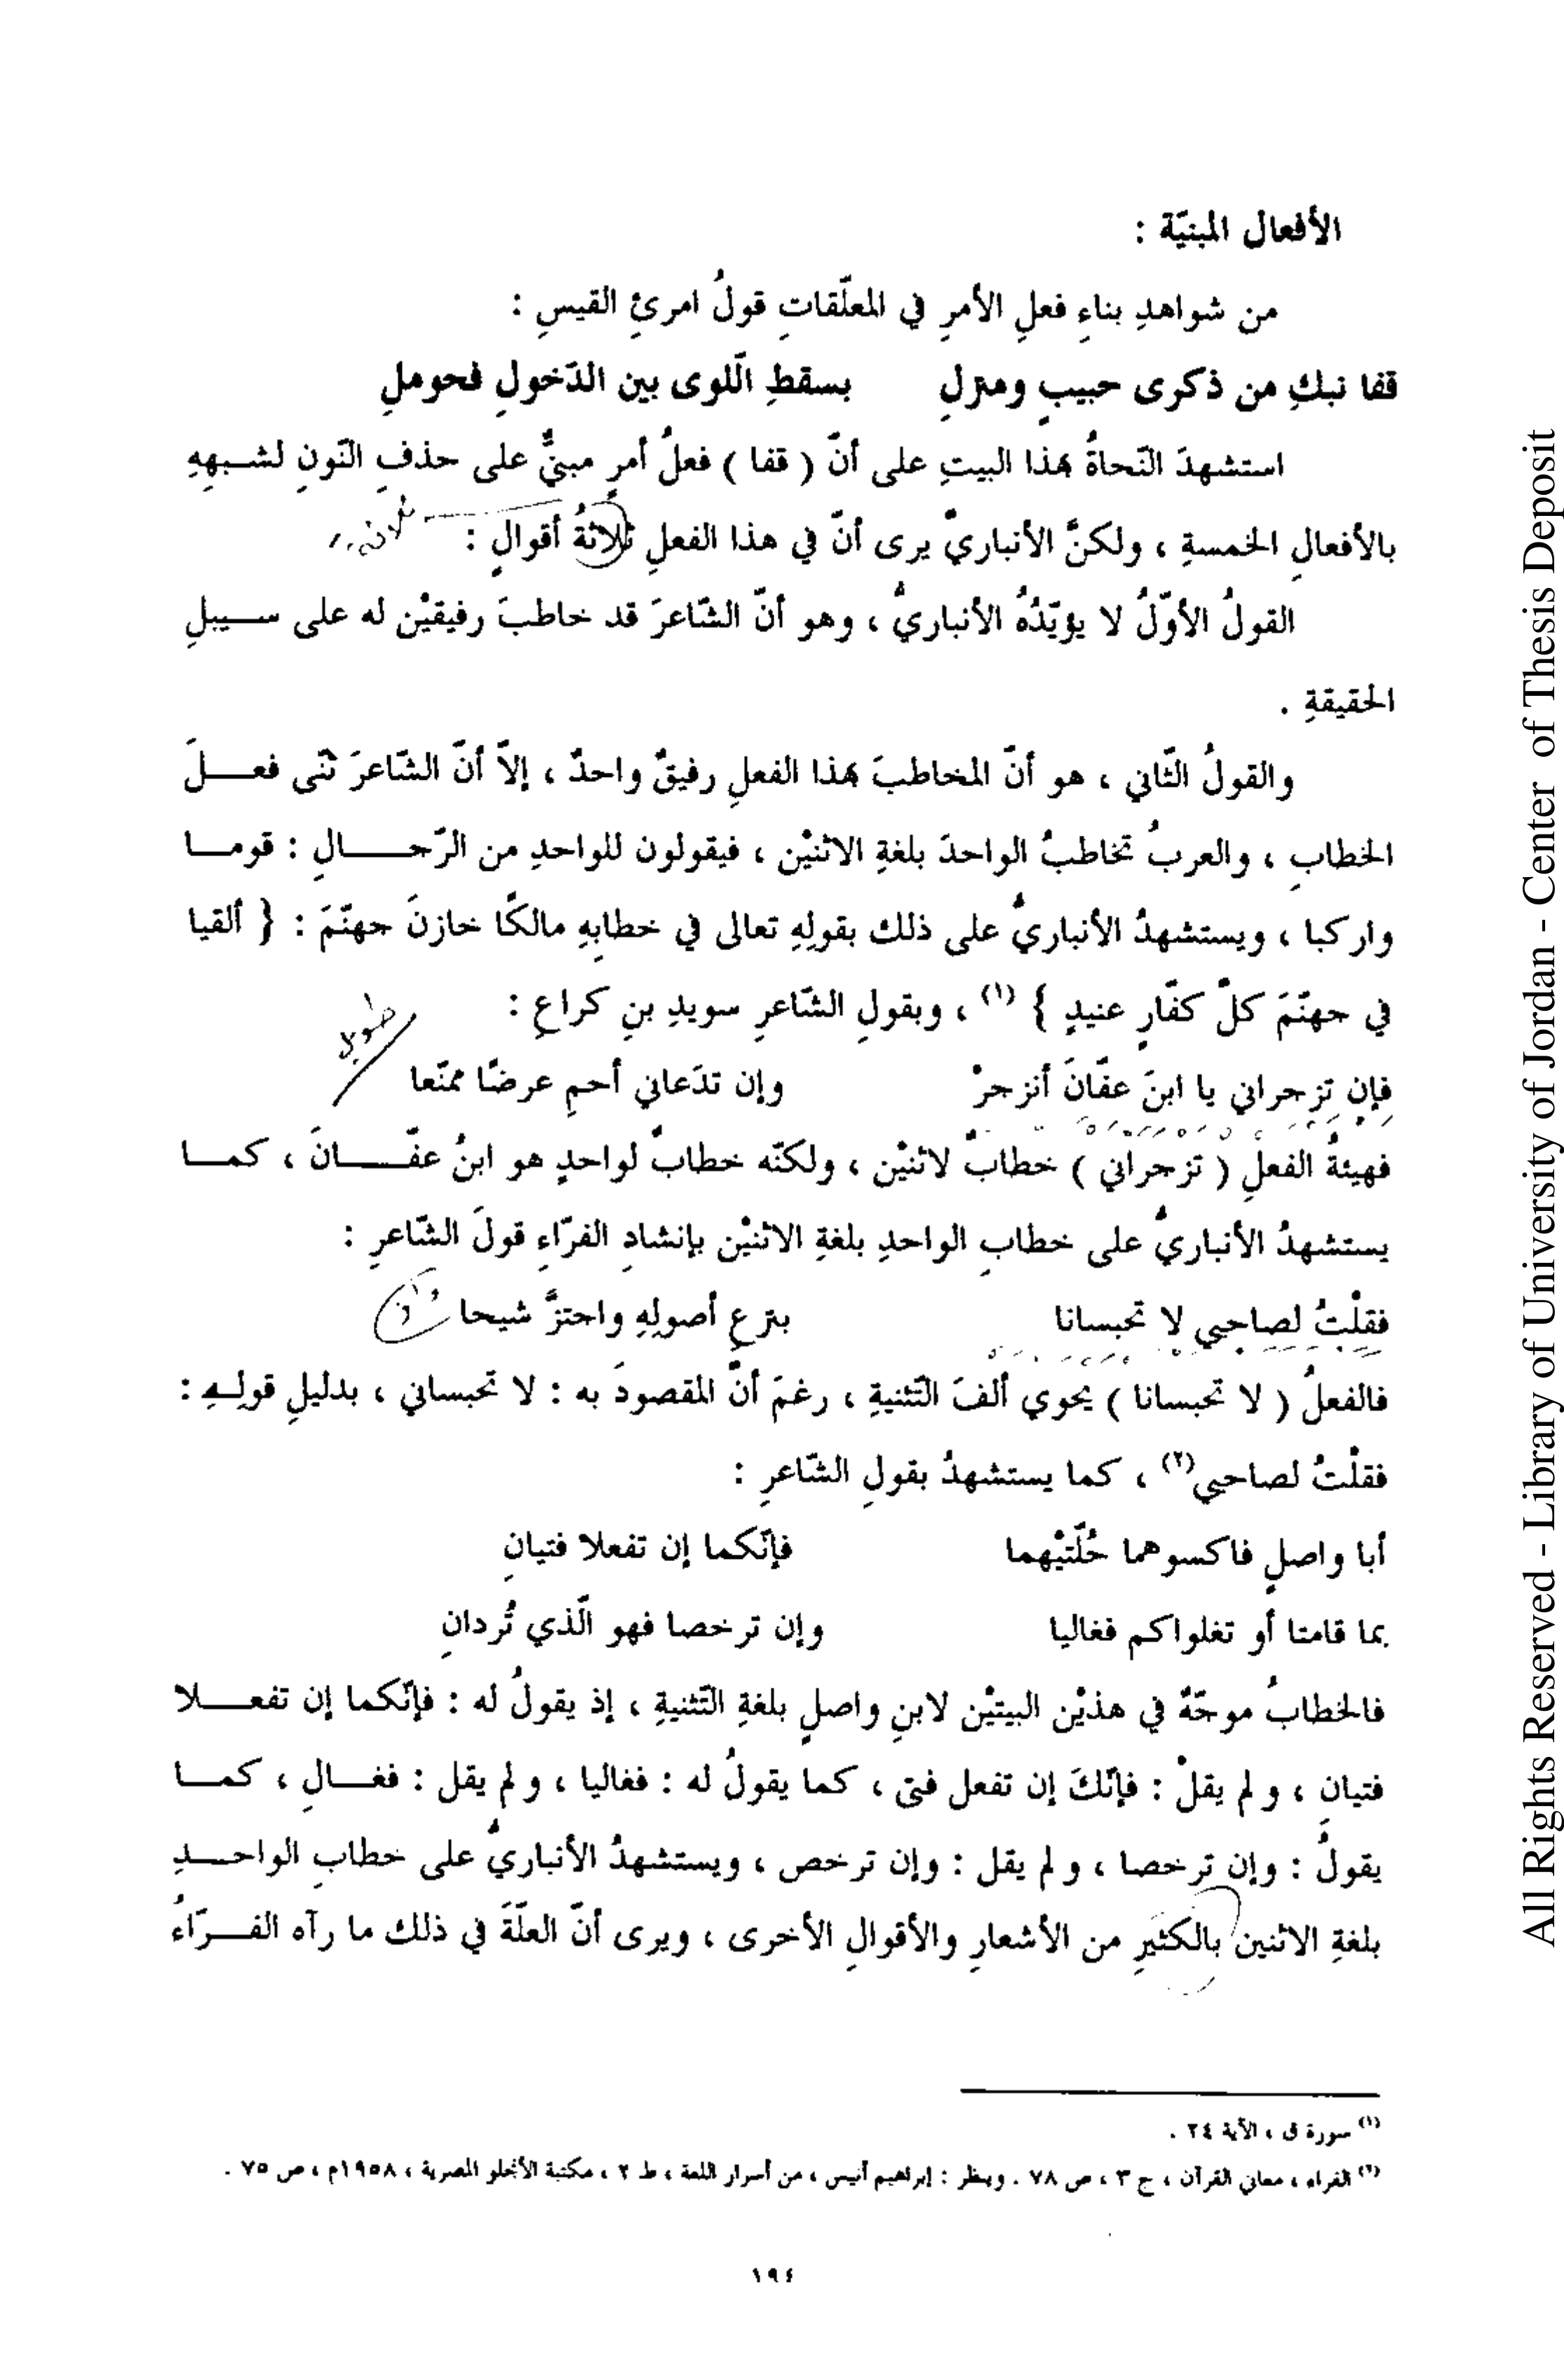 الأفعال المبنيّة :
من شواهدِ بناءِ فعلِ الأمرِ في المعلّقاتِ قولُ امرئِ القيسِ :
قفا نبكِ من ذكرى حبيبٍ ومنزلِ بسقطِ اللّوى بين الدّخولِ فحوملِ
استشهدَ النّحاةُ بهذا البيتِ على أنّ ( قفا ) فعلُ أمرٍ مبنيٌّ على حذفِ النّونِ لشبهِهِ
بالأفعالِ الخمسةِ ، ولكنَّ الأنباريّ يرى أنّ في هذا الفعلِ ثلاثةُ أقوالٍ :
القولُ الأوّلُ لا يؤيّدُهُ الأنباريُّ ، وهو أنّ الشّاعرَ قد خاطبَ رفيقيْن له على سبيلِ
الحقيقةِ .
والقولُ الثّاني ، هو أنّ المخاطبَ بهذا الفعلِ رفيقٌ واحدٌ ، إلاّ أنّ الشّاعرَ ثنّى فعلَ
الخطابِ ، والعربُ تخاطبُ الواحدَ بلغةِ الاثنيْن ، فيقولون للواحدِ من الرّجالِ : قوما
واركبا ، ويستشهدُ الأنباريُّ على ذلك بقولِهِ تعالى في خطابِهِ مالكًا خازنَ جهنّمَ : { ألقيا
في جهنّمَ كلَّ كفّارٍ عنيدٍ } (١) ، وبقولِ الشّاعرِ سويدِ بنِ كراعِ :
فإن تزجراني يا ابنَ عفّانَ أنزجرْ وإن تدَعاني أحمِ عرضًا ممنّعا
فهيئةُ الفعلِ ( تزجراني ) خطابٌ لاثنيْن ، ولكنّه خطابٌ لواحدٍ هو ابنُ عفّانَ ، كما
يستشهدُ الأنباريُّ على خطابِ الواحدِ بلغةِ الاثنيْن بإنشادِ الفرّاءِ قولَ الشّاعرِ :
فقلْتُ لصاحبي لا تحبسانا بنزعِ أصولِهِ واحتزَّ شيحا
فالفعلُ ( لا تحبسانا ) يحوي ألفَ التّثنيةِ ، رغمَ أنّ المقصودَ به : لا تحبساني ، بدليلِ قولِهِ :
فقلْتُ لصاحبي(٢) ، كما يستشهدُ بقولِ الشّاعرِ :
أبا واصلٍ فاكسوهما حُلّتيْهما فإنّكما إن تفعلا فتيانِ
بما قامتا أو تغلواكم فغاليا وإن ترخصا فهو الّذي تُردانِ
فالخطابُ موجّهٌ في هذيْن البيتيْن لابنِ واصلٍ بلغةِ التّثنيةِ ، إذ يقولُ له : فإنّكما إن تفعلا
فتيانِ ، و لم يقلْ : فإنّكَ إن تفعل فتى ، كما يقولُ له : فغاليا ، و لم يقل : فغالِ ، كما
يقولُ : وإن ترخصا ، و لم يقل : وإن ترخص ، ويستشهدُ الأنباريُّ على خطابِ الواحدِ
بلغةِ الاثنين بالكثيرِ من الأشعارِ والأقوالِ الأخرى ، ويرى أنّ العلّةَ في ذلك ما رآه الفرّاءُ
(١) سورة ق ، الآية ٢٤ .
(٢) الفراء ، معاني القرآن ، ج ٣ ، ص ٧٨ . وينظر : إبراهيم أنيس ، من أسرار اللغة ، ط ٢ ، مكتبة الأنجلو المصرية ، ١٩٥٨م ، ص ٧٥ .
١٩٤
All Rights Reserved - Library of University of Jordan - Center of Thesis Deposit